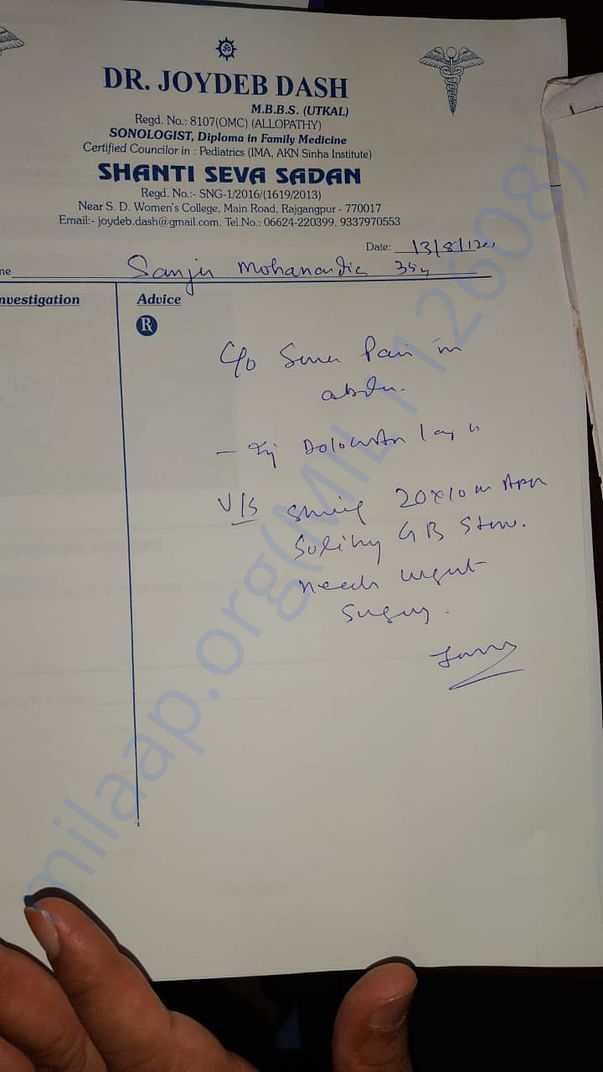 DR. JOYDEB DASH
M.B.B.S. (UTKAL)
Regd. No.: 8107(OMC) (ALLOPATHY)
SONOLOGIST, Diploma in Family Medicine
Certified Councilor in : Pediatrics (IMA, AKN Sinha Institute)
SHANTI SEVA SADAN
Regd. No.:- SNG-1/2016/(1619/2013)
Near S. D. Women's College, Main Road, Rajgangpur - 770017
Email:- joydeb.dash@gmail.com, Tel.No.: 06624-220399, 9337970553
Date: 13/8/
me Sanju 35y
nvestigation
Advice
R
C/o Pain in
-
20x10 m
GB Stone.
needs urgent
Surgery.
milaap.org(MIL112608)